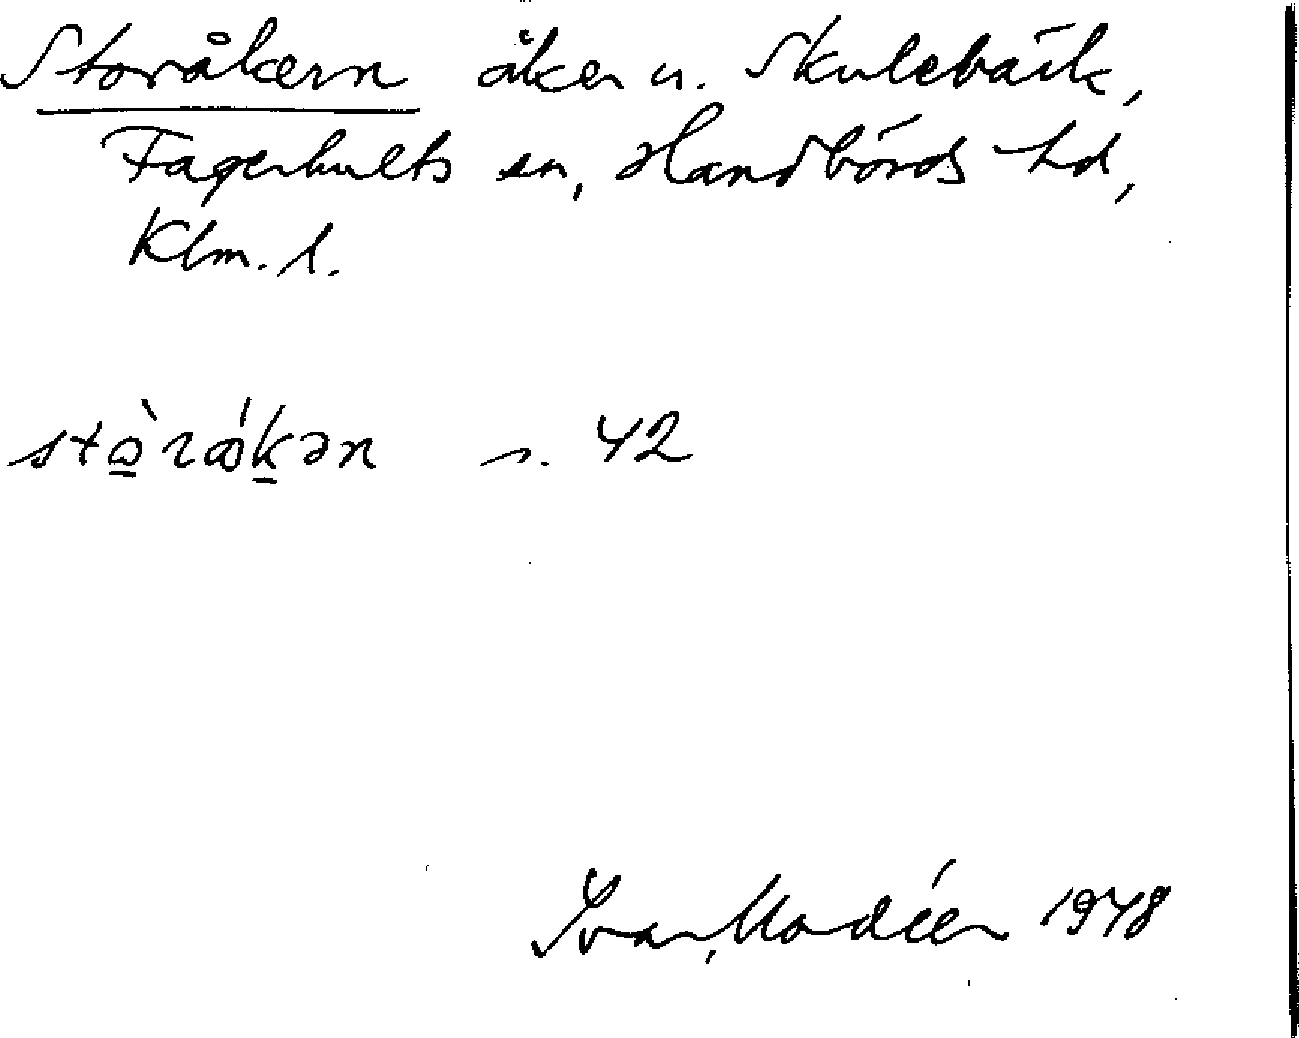 Storåkern åker u. Skulebäck,
Fagerhults sn, Handbörds hd,
Klm. l.
s. 42
Ivar Modéer 1948